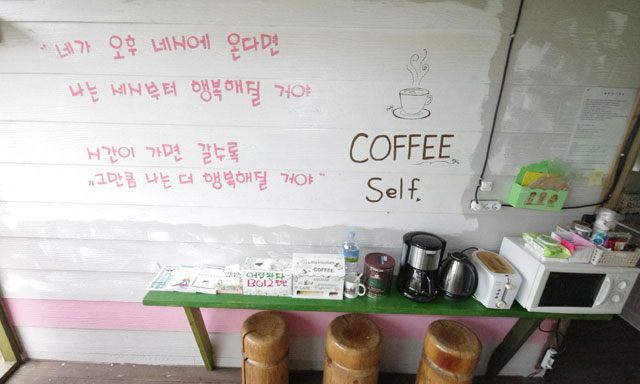 "네가 오후 네시에 온다면
나는 세시부터 행복해질 거야
시간이 가면 갈수록
„그만큼 나는 더 행복해질 거야"
COFFEE
Self.
COFFEE